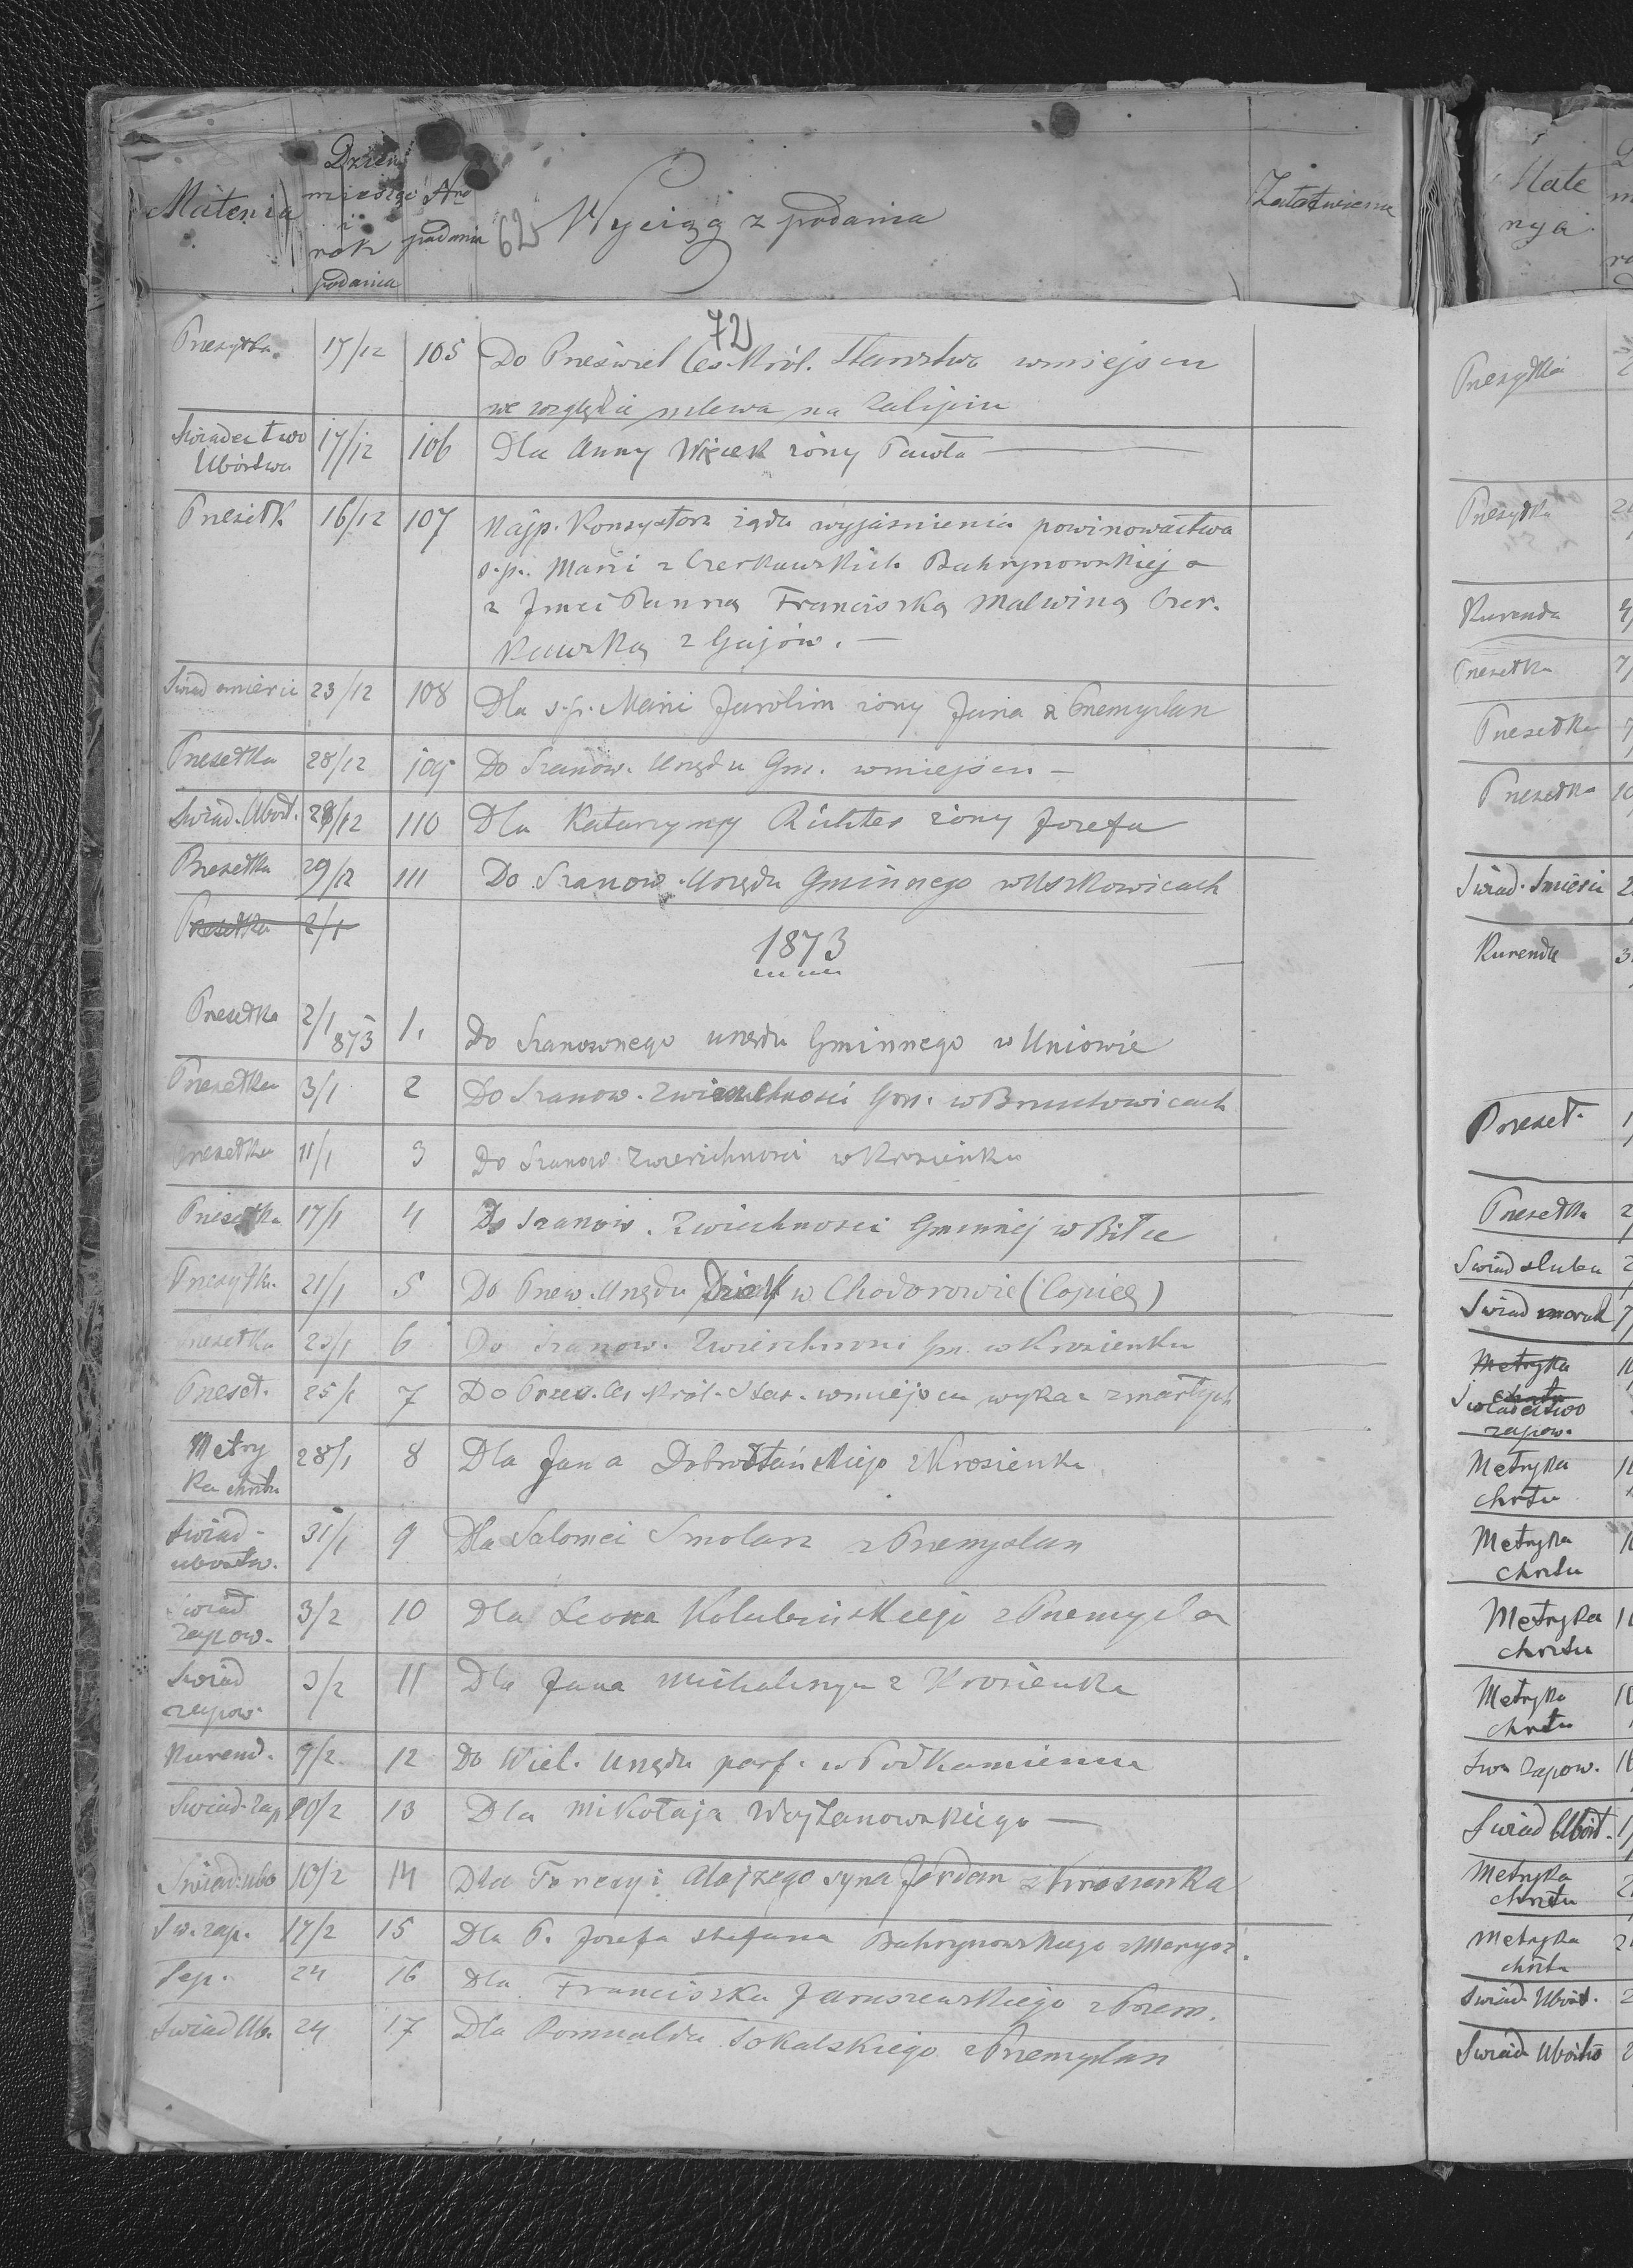 Materia
Dzień
miesiąc Nro
i
rok podania
podania
62 Wyciąg z podania
Załatwienia
72
Przesyłka 17/12 105 Do Przeświet Ces. Król. Starostwa w miejscu
we względzie mlewa na
Świadectwo 17/12 106 Dla Anny Więcek żony Pawła —
Ubóstwa
Przesiłk 16/12 107 Najp. Konsystorz żąda wyjaśnienia powinowactwa
s.p. Marii z Czerkawskich Bahrynowskiej a
z Jmci Panną Franciszką Malwiną Czer.
kawską z Gajów. —
Świad śmierci 23/12 108 Dla s.p. Marii Jarolim żony Jana z Przemyślan
Przesełka 28/12 109 Do Szanow. Urzędu Gm. w miejscu —
Świad. Ubóst. 28/12 110 Dla Katarzyny Richter żony Jozefa
Przesełka 29/12 111 Do Szanow. Urzędu Gminnego w Uszkowicach
Przesełka 2/1
1873
Przesełka 2/1 873 1. Do Szanownego urzędu Gminnego w Uniowie
Przesełka 3/1 2 Do Szanow. Zwierzchności Gm. w Bruchowicach
Przesełka 11/1 3 Do Szanow Zwierzchności w Krosienku
Przesełka 17/1 4 Do Szanow. Zwierchnosci Gminnej w Bitce
Przesyłka. 21/1 5 Do Przew. Urzędu Dziek w Chodorowie (Copieg)
Przesełka 23/1 6 Do Szanow. Zwierchnosci Gm. w Krosienku
Przeseł. 25/1 7 Do Przew. Ces. Król. Star. w miejscu wykaz zmarłych
Metry 28/1 8 Dla Jana Dobrostańskiego z Krosienka
ka chrztu
Świad- 31/1 9 Dla Salomei Smolarz z Przemyslan
ubostw.
Świad 3/2 10 Dla Leona Kolubińskiego z Przemysla
zapow.
Świad 3/2 11 Dla Jana Michaliszyn z Krosienka
zapow.
Kurend. 9/2 12 Do Wiel. Urzędu parf. w Podkamieniu
Świad. Zap 10/2 13 Dla Mikołaja Wojtanowskiego —
Świad. ubo 10/2 14 Dla Alojzego syna Jordan z Krosienka
Św. zap. 17/2 15 Dla P. Jozefa Stefana Bahrynowskiego z
24 16 Dla Franciszka Jaruszewskiego z Przem.
Świad Ub. 24 17 Dla Romualda Sokalskiego z Przemyslan
Mate
rya
Przesyłka
Przesyłka
Kurenda
Przesełka
Przesełka
Przesełka 10
Świad. Śmierci
Kurenda
Przeseł.
Przesełka
Świad slubu
Świad moral
Metryka
chrztu
Swiadectwo
zapow.
Metryka
chrztu
Metryka
chrztu
Metryka
chrztu
Metryka
chrztu
Św Zapow.
Świad Ubóst.
Metryka
chrztu
Metryka
chrztu
Świad Ubóst.
Świad Ubóstw